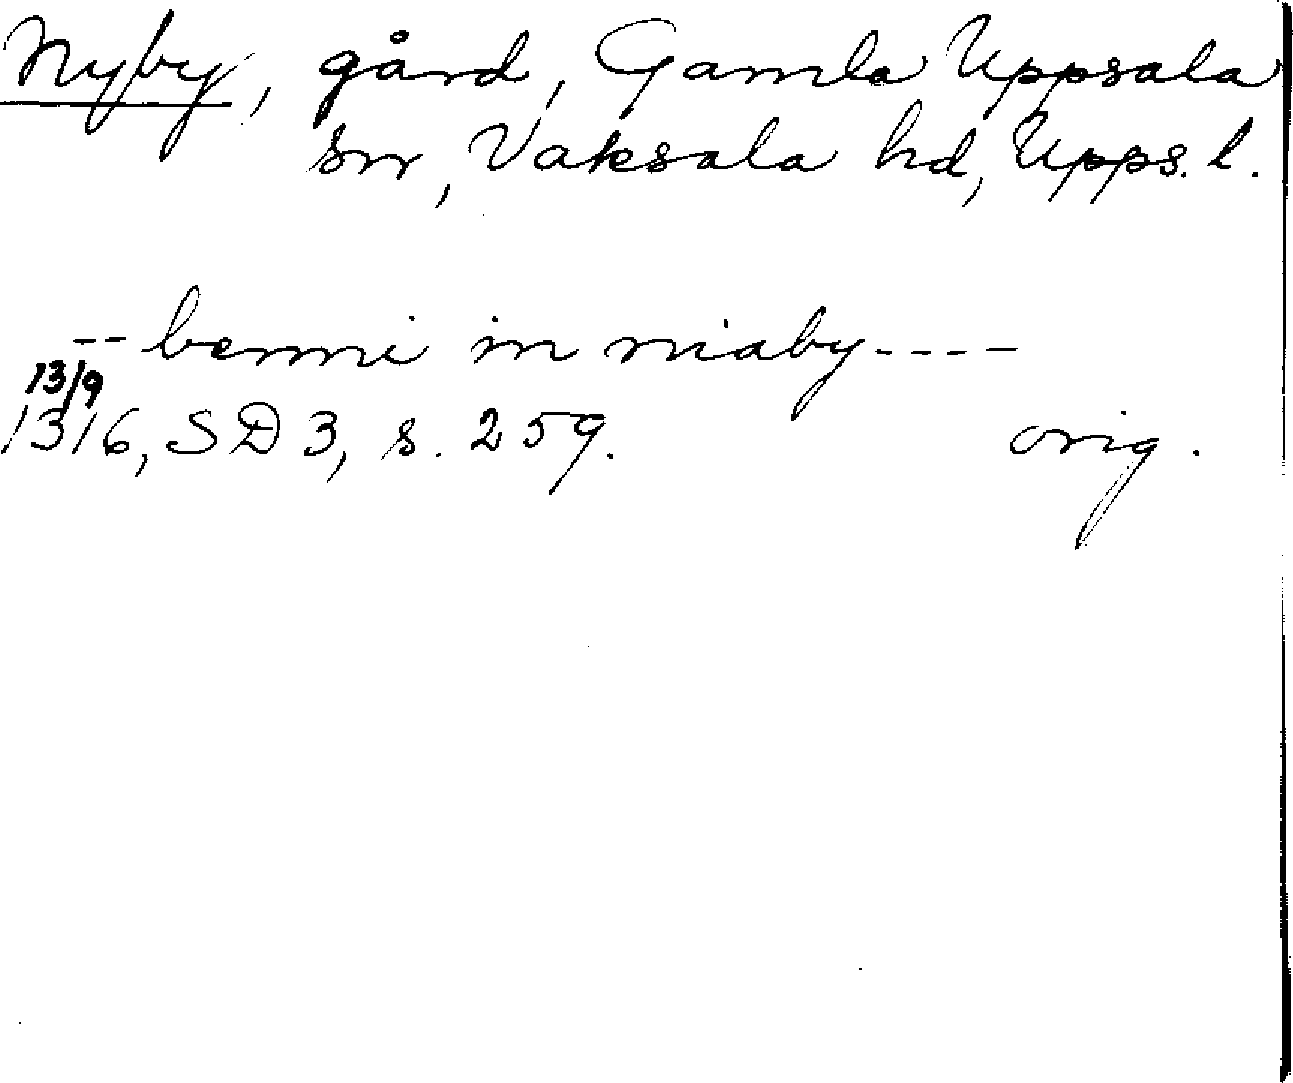 Nyby, gård, Gamla Uppsala
sn, Vaksala hd, Upps. l.
-- benni in niaby ----
13/9
1316, SD 3, s. 259. orig.